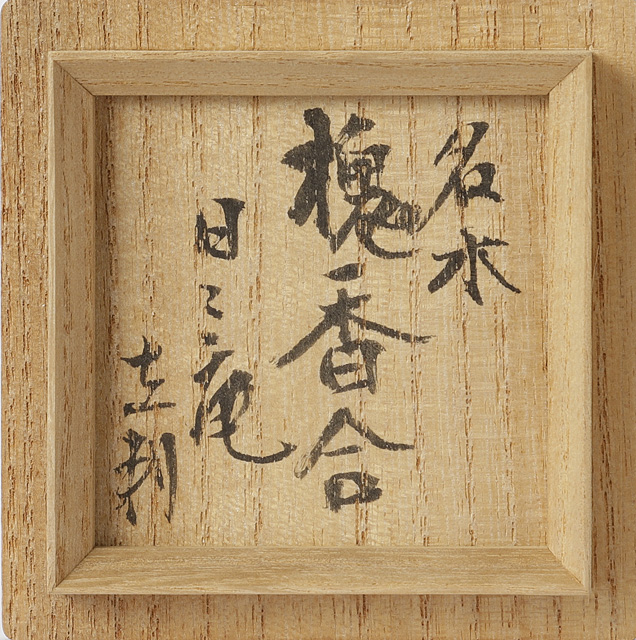 名水
槐香合
日々庵
在判